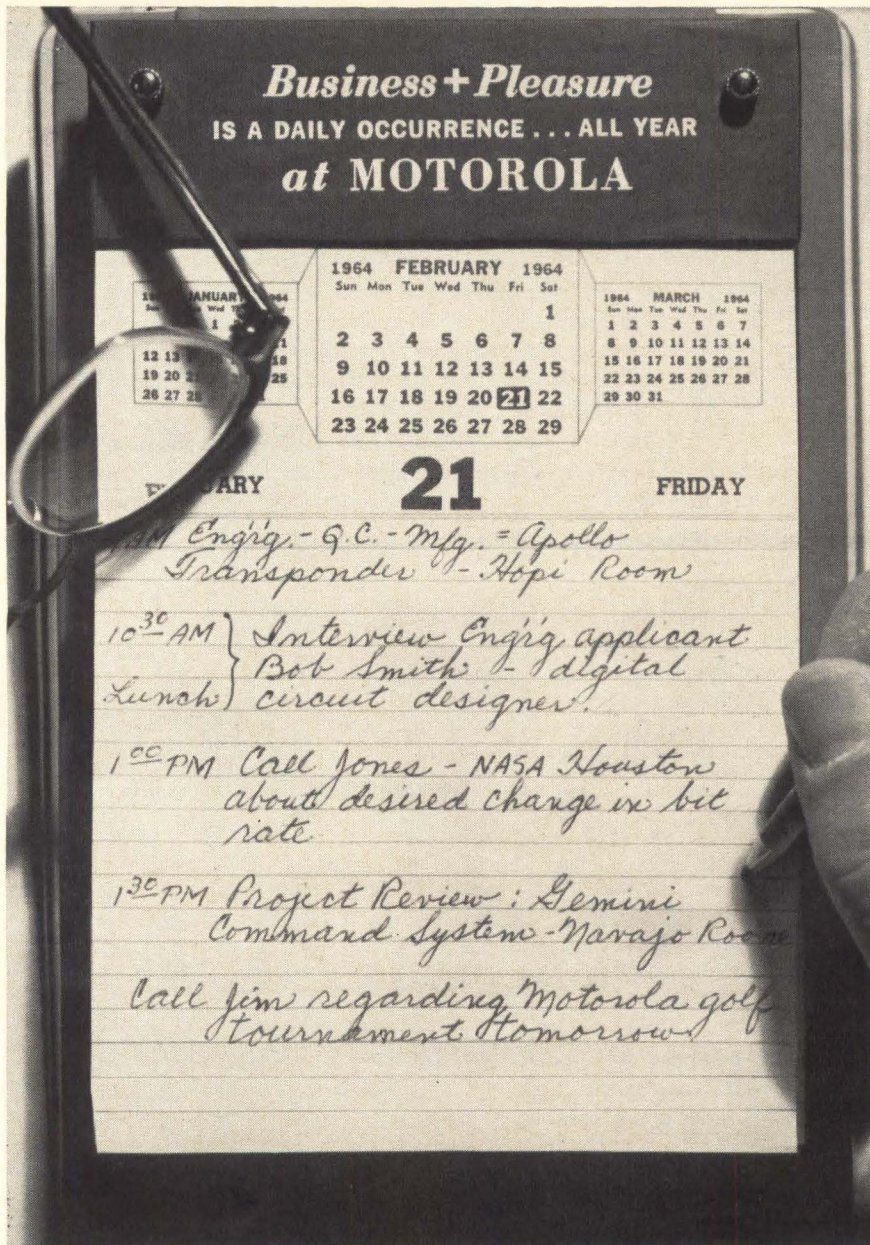 Business + Pleasure
IS A DAILY OCCURRENCE... ALL YEAR
at MOTOROLA
1964 FEBRUARY 1964
Sun Mon Tue Wed Thu Fri Sat
1
2 3 4 5 6 7 8
9 10 11 12 13 14 15
16 17 18 19 20 21 22
23 24 25 26 27 28 29
JANUARY
1
12 13 18
19 20 25
26 27 28
1964 MARCH 1964
Sun Mon Tue Wed Thu Fri Sat
1 2 3 4 5 6 7
8 9 10 11 12 13 14
15 16 17 18 19 20 21
22 23 24 25 26 27 28
29 30 31
21 FRIDAY
AM Eng'r'g. - Q.C. - Mfg. = Apollo
Transponder - Hopi Room
10 30 AM Interview Eng'r'g applicant
Bob Smith - digital
Lunch circuit designer.
1 00 PM Call Jones - NASA Houston
about desired change in bit
rate
1 30 PM Project Review : Gemini
Command System - Navajo Room
Call Jim regarding Motorola golf
tournament tomorrow